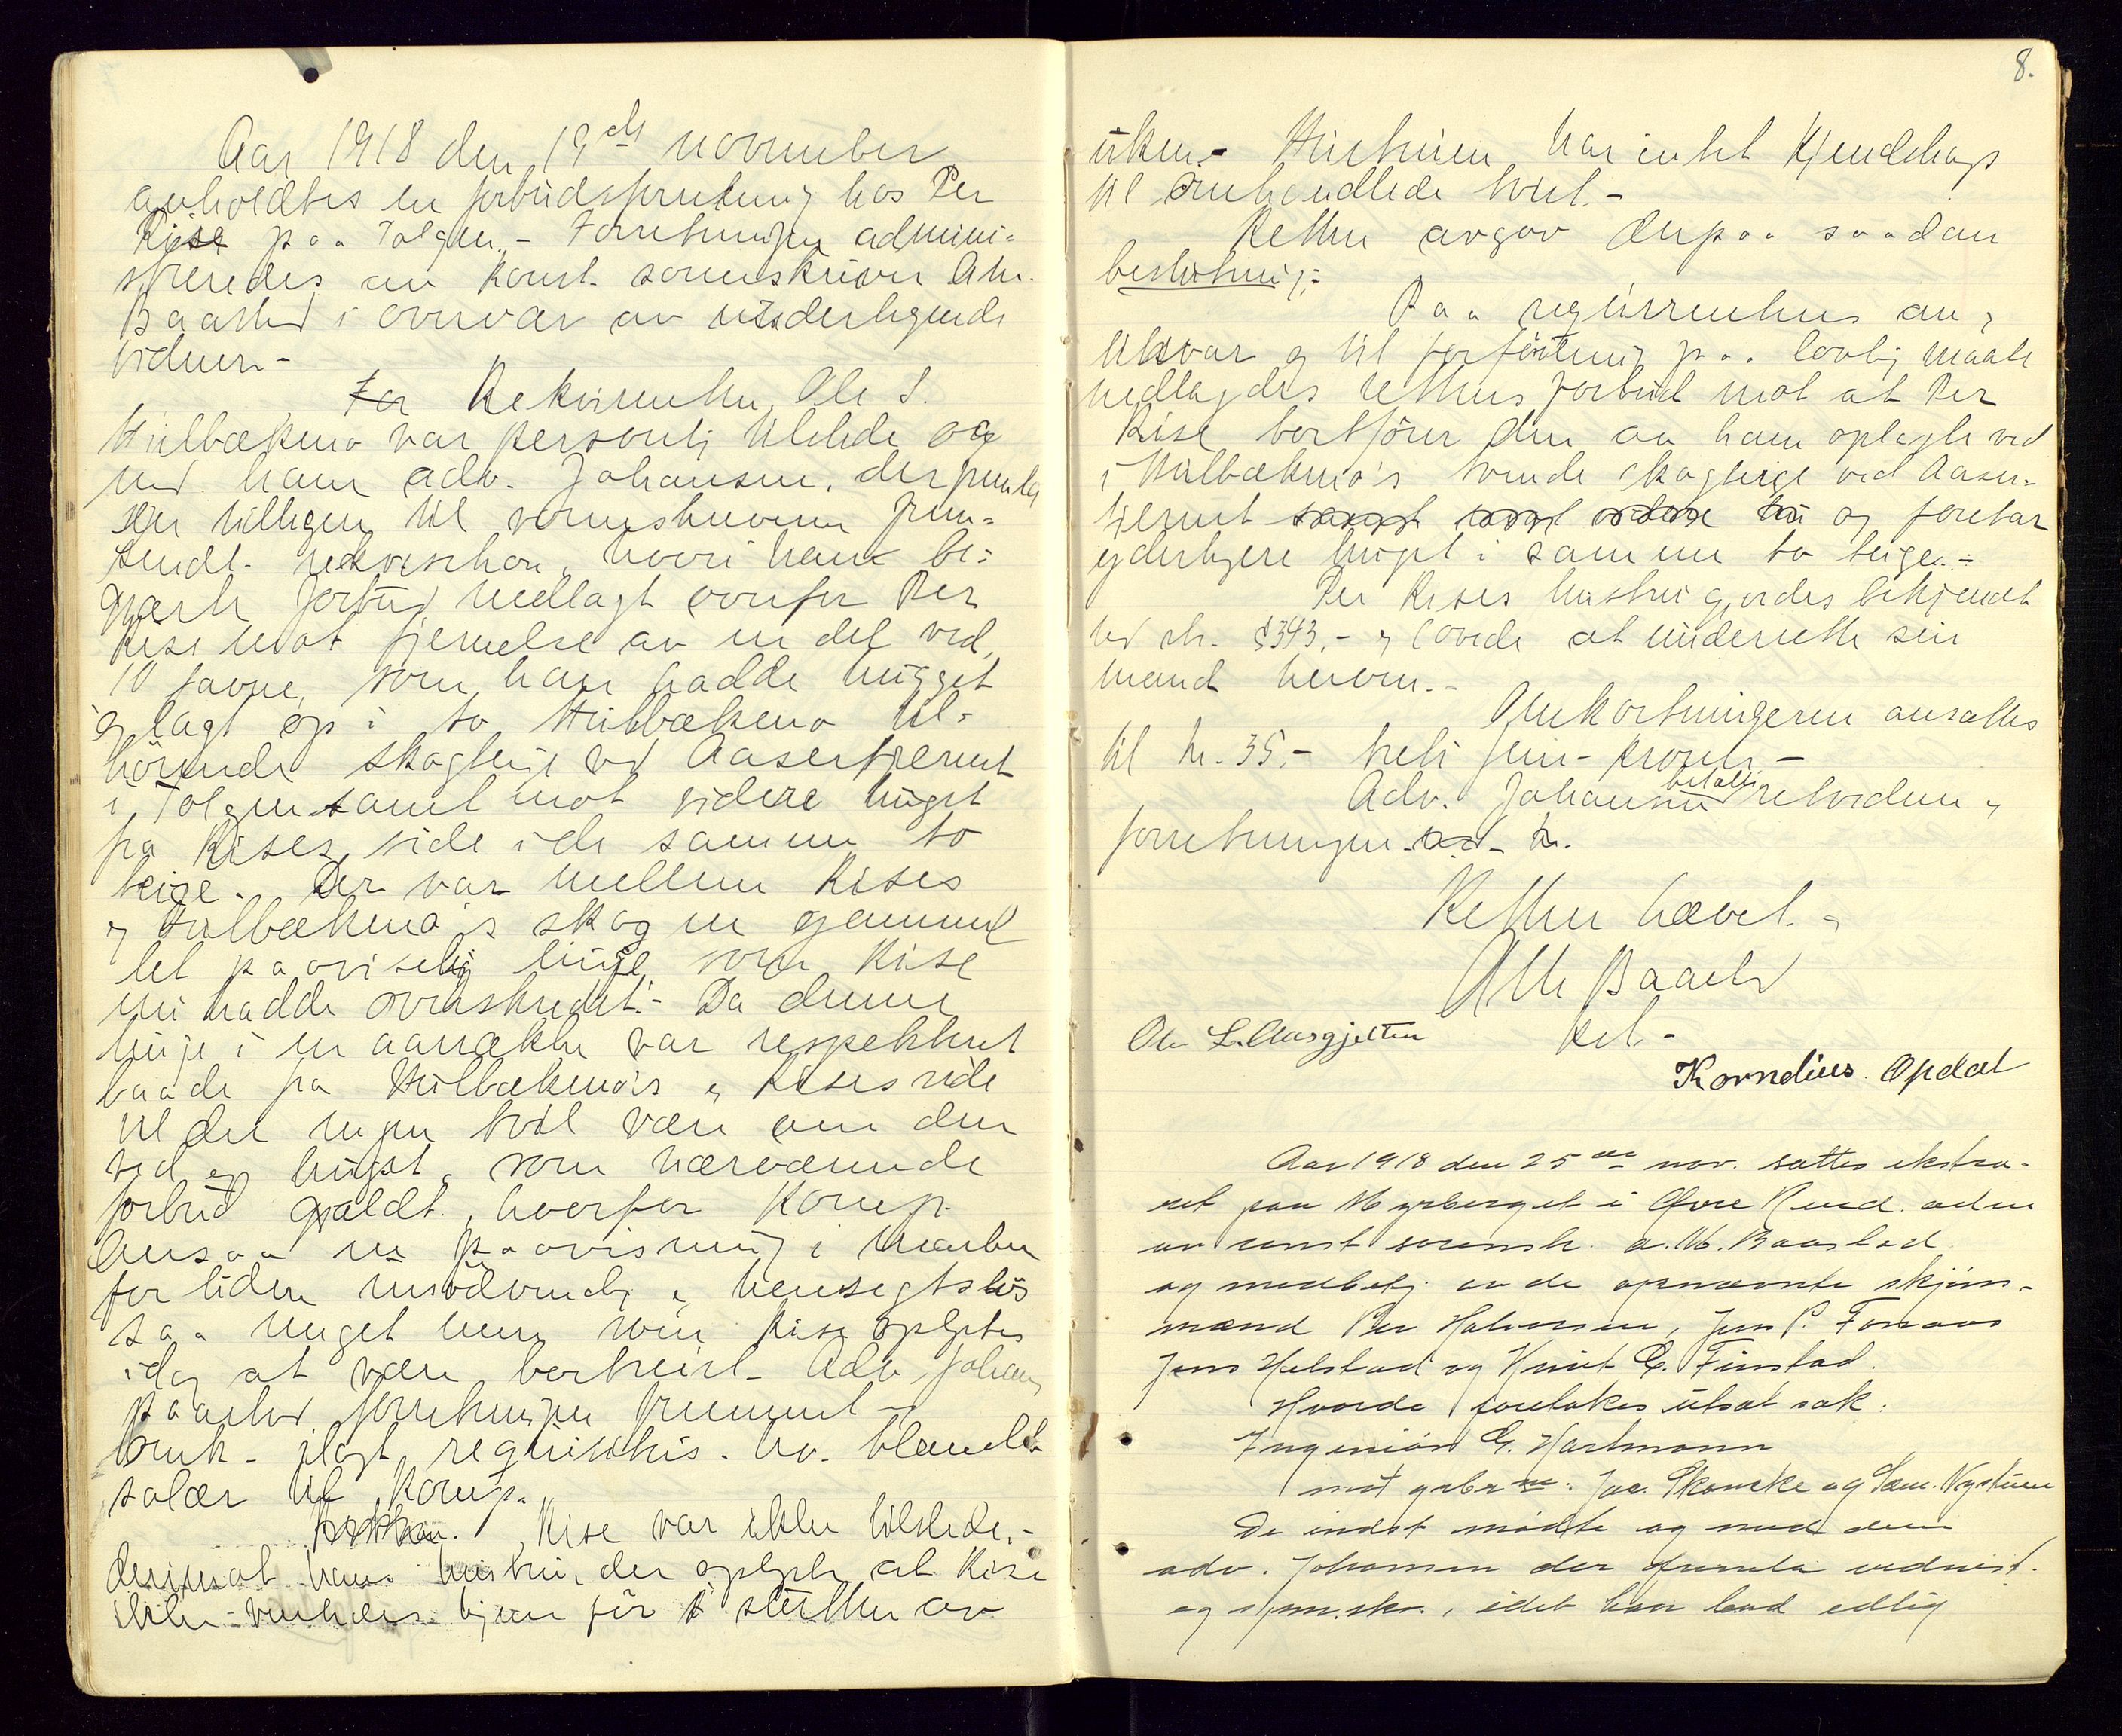 Aar 1918 den 19de november
avholdtes en forbudsforretning hos Per
Kise paa Tolgen.- Forretningen admini-
streredes av konst. sorenskriver Ahr.
Baastad i overvær av undertegnede
vidner.-
For Rekvirenten, Ole S.
Hulbækmo var personlig tilstede og
med ham adv. Johansen, der fremla
den tidligere til sorenskriveren frem-
sendt rekvisition, hvori han be-
gjærte forbud nedlagt overfor Per
Kise mot fjernelse av en del ved,
10 favne, som han hadde hugget
og lagt op i to Hulbækmo til-
hörende skogteige ved Aasertjernet
i Tolgen samt mot videre hugst
fra Kises side i de samme to
teige. Der var mellem Kises
og Hulbækmo's skog en gammel
let paaviselig linje, som Kise
nu hadde overskredet.- Da denne
linje i en aarrække var respektert
baade fra Hulbækmo's og Kises side
vil der ingen tvil være om den
ved og hugst, som nærværende
forbud gjældt, hvorfor komp.
ansaa en paavisning i marken
for liden nödvendig og hensigtslös
saa meget mere som Kise oplystes
idag at være bortreist. Adv. Johansen
paastod forretningen fremmet og
bruk. ilagt requisitus. hv. blandt
salær til komp.
Kise var ikke tilstede,-
derimot hans hustru, der oplyste at Kise
ikke ventedes hjem før i slutten av
8.
uken.- Hustruen har intet kjendskap
til omhandlede tvist.-
Retten avgav derpaa saadan
beslutning:
Paa requirentens an-
svar og til forfølgning paa lovlig maate
nedlagdes rettens forbud mot at Per
Kise bortfører den av ham oplagte ved
i Hulbækmo's tvende skogteige ved Aaser-
tjernet og foretar
yderligere hugst i samme to teige.-
Per Kises hustru gjordes bekjendt
med str. § 343.- og lovede at underrette sin
mand herom.-
Omkostningerne ansattes
til kr. 35.- tretifem kroner-
Adv. Johansen betalte retsvidnene
forretningen
Retten hævet.-
Ahr Baastad
kst.-
Ole L. Aasgjelten
Kornelius Opdal
Aar 1918 den 25de nov. sattes ekstra-
ret paa Myrberget i Øvre Rend. adm.
av const sorensk. A. Chr. Baastad
og medbetj. av de opnævnte skjøns-
mænd Per Halvorsen, Jens P. Fonaas
Jens Helstad og Knut E. Finstad.
Hvorda foretokes utsat sak:
Ingeniör G. Hartmann
mot gaardbr.ne: Jac. Skancke og Sam. Nystuen
De indst. mødte og med dem
adv. Johansen der fremla utskrift
og sjøn.skr., idet han bad edlig